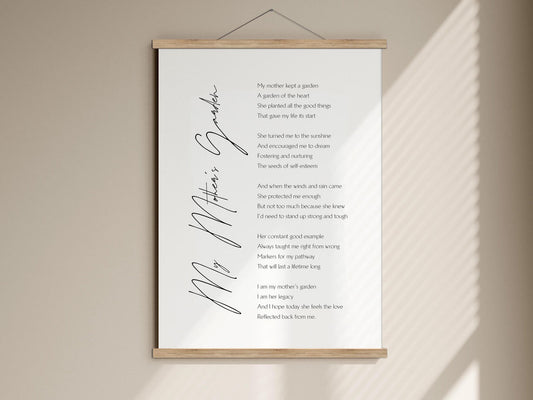 My Mother's Garden
My mother kept a garden
A garden of the heart
She planted all the good things
That gave my life its start
She turned me to the sunshine
And encouraged me to dream
Fostering and nurturing
The seeds of self-esteem
And when the winds and rain came
She protected me enough
But not too much because she knew
I'd need to stand up strong and tough
Her constant good example
Always taught me right from wrong
Markers for my pathway
That will last a lifetime long
I am my mother's garden
I am her legacy
And I hope today she feels the love
Reflected back from me.